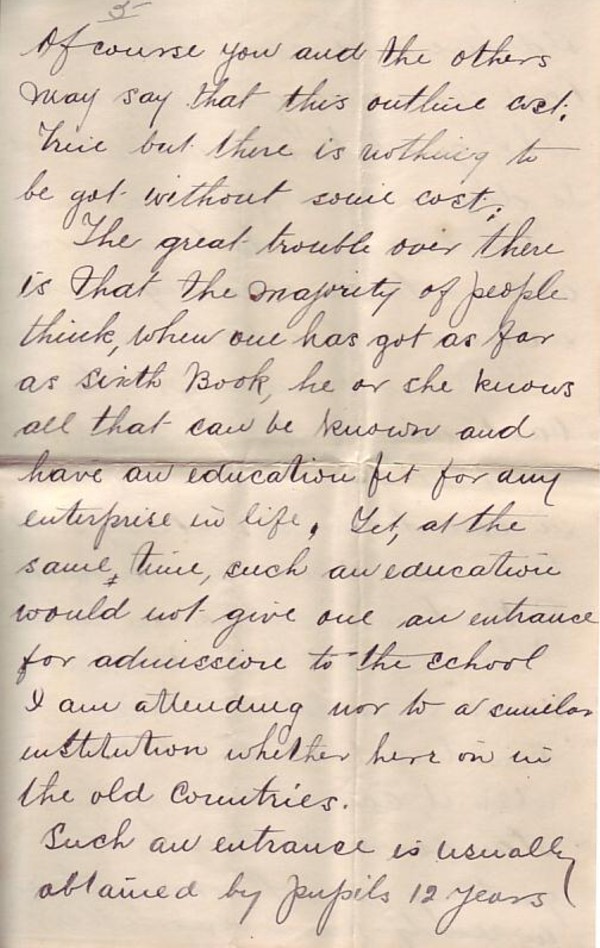 5
Of course you and the others
may say that this outline cost.
True but there is nothing to
be got without some cost.
The great trouble over there
is that the majority of people
think, when one has got as far
as sixth Book, he or she knows
all that can be known and
have an education fit for any
enterprise in life. Yet, at the
same time, such an education
would not give one an entrance
for admission to the school
I am attending nor to a similar
institution whether here or in
the old Countries.
Such an entrance is usually
obtained by pupils 12 years